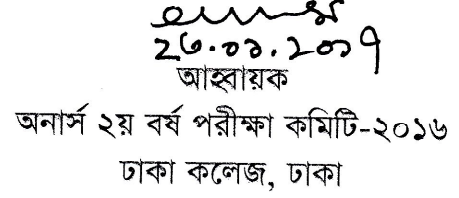 ২৩.০১.২০১৭
আহ্বায়ক
অনার্স ২য় বর্ষ পরীক্ষা কমিটি-২০১৬
ঢাকা কলেজ, ঢাকা